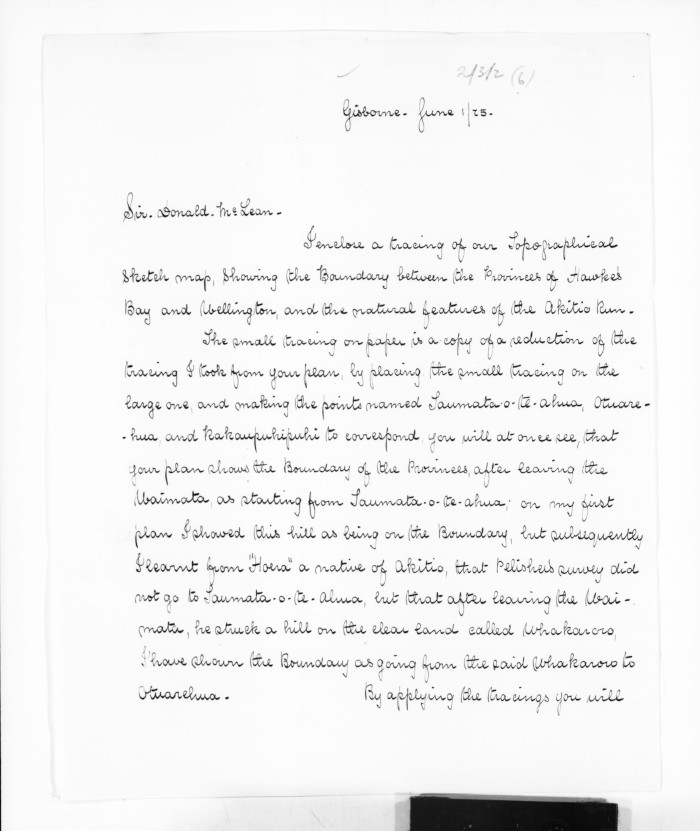 2/3/2 (6)
Gisborne - June 1/75 -
Sir - Donald - McLean -
I enclose a tracing of our Topographical
Sketch map, Showing the Boundary between the Provinces of Hawke's
Bay and Wellington, and the natural features of the Akitio Run -
The small tracing on paper is a copy of a reduction of the
tracing I took from your plan, by placing the small tracing on the
large one, and making the points named Taumata-o-te-ahua, Otuare-
-hua, and Kakaupuhipuhi to correspond, you will at once see, that
your plan shows the Boundary of the Provinces, after leaving the
Waimata, as starting from Taumata-o-te-ahua; on my first
plan I showed this hill as being on the Boundary, but subsequently
I learnt from "Hoera" a native of Akitio, that Pelichet's survey did
not go to Taumata-o-te-Ahua, but that after leaving the Wai-
mata, he struck a hill on the clear land called Whakaroro,
I have shown the Boundary as going from the said Whakaroro to
Otuarehua - By applying the tracings you will